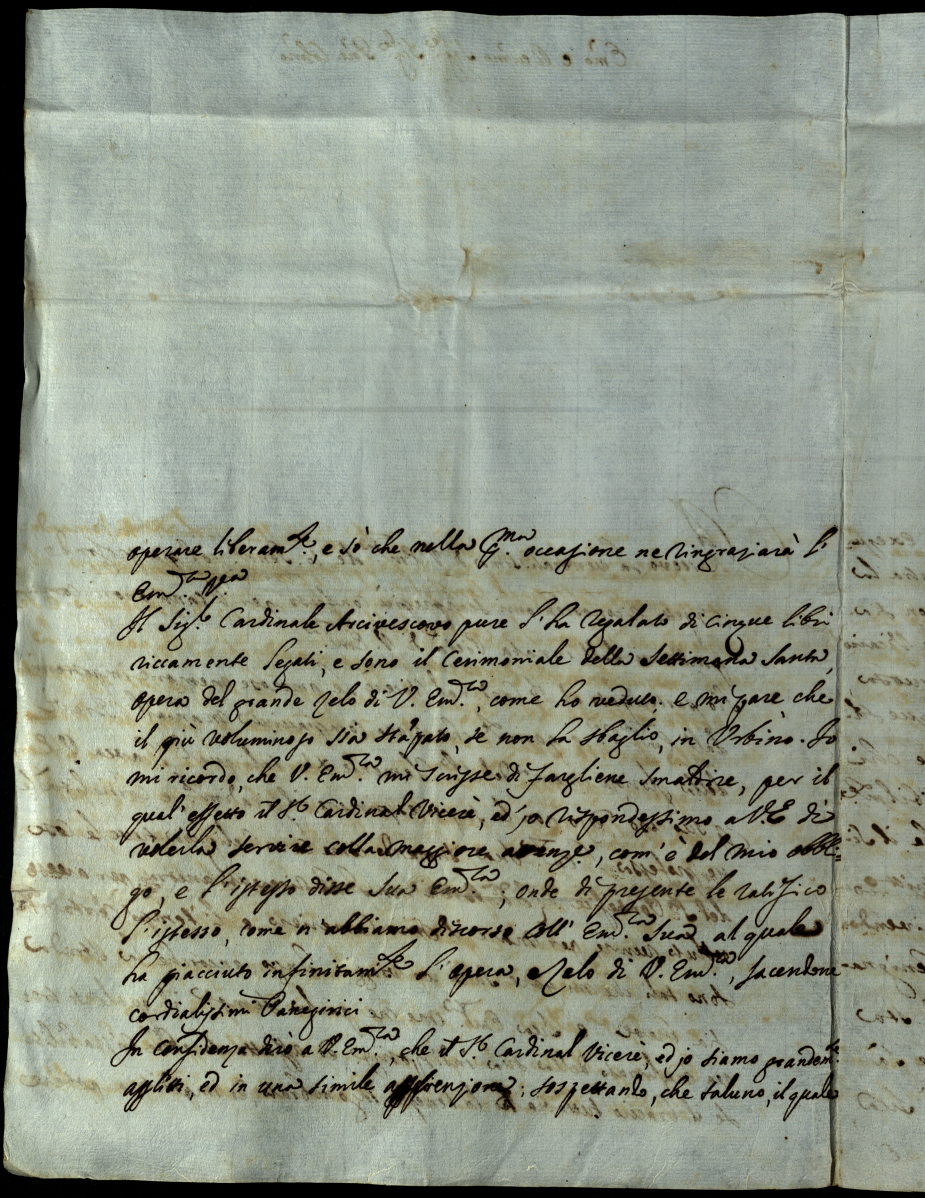 operare liberam.te, e sò che nella p.ma occasione ne ringraziarà l'
Em.za
Il Sig.r Cardinale Arcivescovo pure l'ha regalato di cinque libri
riccamente legati, e sono il Cerimoniale della Settimana Santa,
opera del grande zelo di V. Em.za, come ho veduto. e mi pare che
il più voluminoso sia stãpato, se non ha sbaglio, in Urbino. Io
mi ricordo, che V. Em.za mi scrisse di fargliene smaltire, per il
qual'effetto il S.r Cardinal Vicerè, ed io rispondessimo a V.E. di
volerla servire colla maggiore, com'è del mio obbli=
go, e l'istesso disse Sua Em.za; onde di presente le ratifico
l'istesso, come n'abbiamo discorso coll' Em.za Sua, al quale
ha piacciuto infinitam.te l'opera, e zelo di V. Em.za, facendone
cordialissimi Panegirici
In confidenza dirò a V. Em.za, che il S.r Cardinal Vicerè, ed io siamo grandem.te
afflitti, ed in una simile afflizione; sospettando, che taluno, il quale